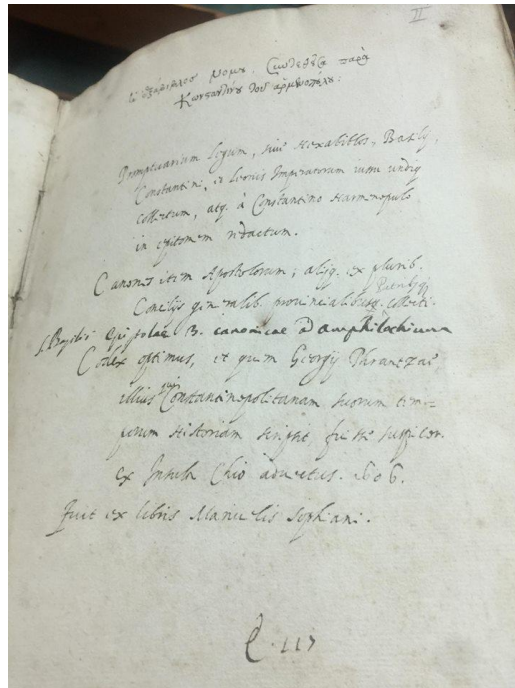 II
ἡ ἑξάβιβλος Νόμου. Συντεθεῖσα παρὰ
Κωνσταντίνου τοῦ ἁρμενοπούλου:
Promptuarium legum, siue Hexabiblos, Basilij,
Constantini, et Leonis Imperatorum iam undiq
collectum, atq. à Constantino Harmenopulo
in epitomem redactum.
Canones item Apostolorum, alijq. ex plurib.
Concilijs generalib. prouincialibusq. collecti.
S. Basilij Epistolae 3. canonicae ad Amphilochium
Codex optimus, et quem Georgij Phrantzae
illius qui Constantinopolitanam suorum tem=
porum Historiam scripsit fuisse suspicor.
ex Insula Chio aduectus. 1606.
Fuit ex libris Manuelis Sophiani.
C. 117